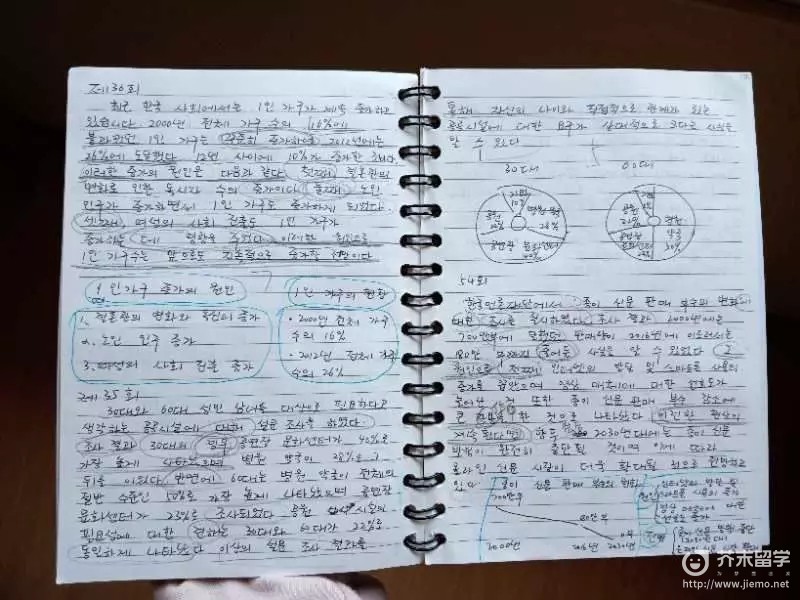 제36회
최근 한국 사회에서는 1인 가구가 계속 증가하고
있습니다. 2000년 전체 가구 수의 16%에
불과했던 1인 가구는 꾸준히 증가하여 2012년에는
26%에 도달했다 12년 사이에 10%가 증가한 것이다.
이러한 증가의 원인은 다음과 같다. 첫째, 결혼관의
변화로 인한 독신자 수의 증가이다 둘째, 노인
인구가 증가하면서 1인 가구도 증가하게 되었다.
셋째, 여성의 사회 진출도 1인 가구가
증가하는 데에 영향을 주었다 이러한 원인으로
1인 가구수는 앞으로도 지속적으로 증가할 것이다
1인가구 증가의 원인
1. 결혼관의 변화와 독신의 증가
2. 노인 인구 증가
3. 여성의 사회 진출 증가
1인 가구의 현황
· 2000년 전체 가구
수의 16%
· 2012년 전체 가구
수의 26%
제35회
30대와 60대 성인 남녀를 대상으로 필요하다고
생각하는 공공시설에 대해 설문 조사를 하였다
조사 결과 30대의 경우 공연장 문화센터가 40%로
가장 높게 나타났으며 병원 약국이 28%로 그
뒤를 이었다 반면에 60대는 병원 약국이 전체의
절반 수준인 50%로 가장 높게 나타났으며 공연장
문화센터가 23%로 조사되었다 공원
필요성에 대한 견해는 30대와 60대가 22%로
동일하게 나타났다 이상의 설문 조사 결과를
통해 자신의 나이와 직접적으로 관계가 되는
공공시설에 대한 요구가 상대적으로 크다는 사실을
알 수 있다
30대
60대
기타
10%
병원 약국
28%
공원
22%
공연장 문화센터
40%
기타
공원
22%
병원
약국
50%
공연장
문화센터
54회
한국언론재단에서 종이 신문 판매 부수의 변화에
대한 조사를 실시하였다 조사 결과 2000년에는
700만부에 달했던 판매량이 2016년에 이르러서는
80만 줄어든 사실을 알 수 있었다 그
원인으로 첫째, 인터넷의 발달 및 스마트폰 사용의
증가를 대한 선호도가
높아진 것 또한 종이 신문 판매 부수 감소에
큰 한 것으로 나타났다 이러한 현상이
계속된다면 향후 2030년대에는 종이 신문
발행이 완전히 중단될 것이며 이에 따라
온라인 신문 시장이 더욱 확대될 것으로 전망하고
있다
종이 신문 판매 부수의 변화
700만부
80만부
0부
2000년
2016년
2030년
원인
인터넷의 발달 및
스마트폰 사용의 증가
대한
선호도 증가
전망
종이 신문 발행 중단
(2030년대)
온라인 신문 시장 확대
芥末留学
http://www.jiemo.net/